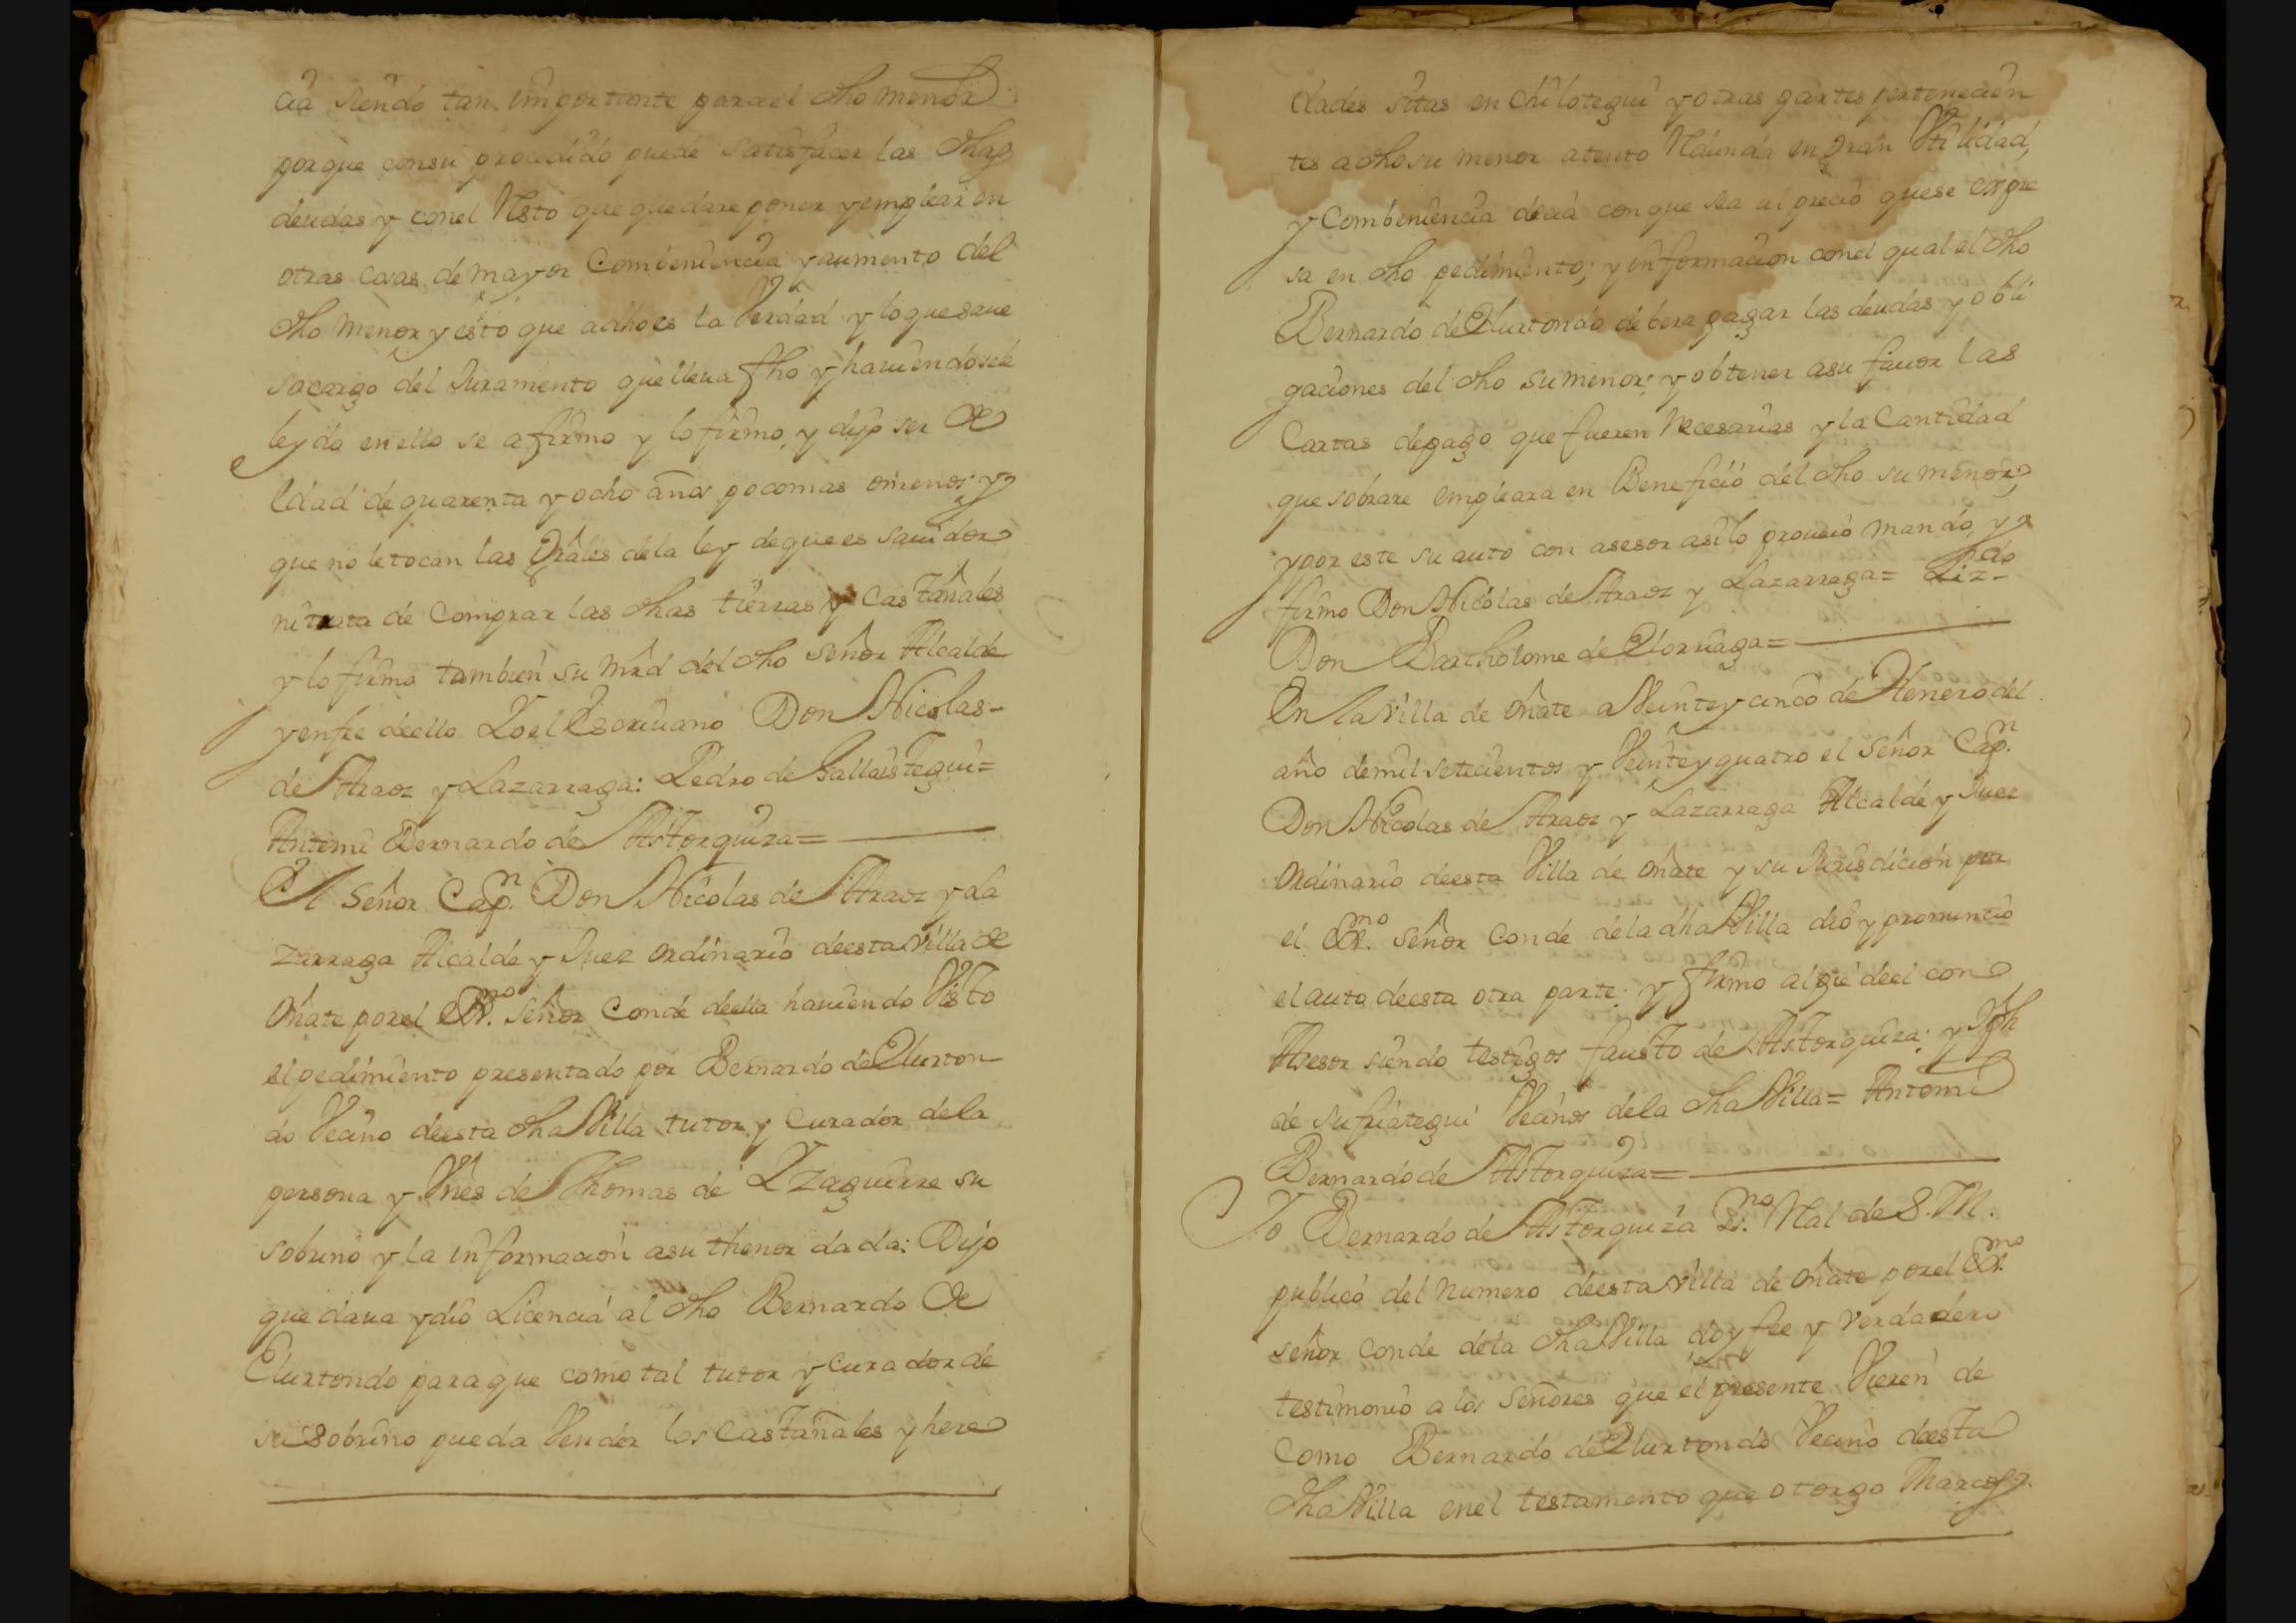 cia siendo tan importante para el dho menor
porque con su procedido puede satisfacer las dhas
deudas y con el Resto que quedare poner y emplear en
otras cosas de mayor Combeniencia y aumento del
dho menor y esto que a dho es la Verdad y lo que saue
so cargo del Juramento que lleua fho y hauiendosele
leydo en ello se afirmo y lo firmo, y dijo ser de
hedad de quarenta y ocho años poco mas o menos; y
que no le tocan las Grâles de la ley de que es sauidor
ni trata de Comprar las dhas tierras y Castañales
y lo firmo tambien su mrd del dho señor Alcalde
y en fee de ello Yo el Escriuano Don Nicolas-
de Araoz y Lazarraga: Pedro de Gallaistegui=
Antemi Bernardo de Astorquiza=
El Señor Capn. Don Nicolas de Araoz y La
zarraga Alcalde y Juez ordinario de esta villa de
oñate por el Exmo. Señor Conde de ella hauiendo Visto
el pedimiento presentado por Bernardo de Elurton-
do Vecino de esta dha Villa tutor y Curador de la
persona y Vienes de Thomas de Yzaguirre su
sobrino y la informacion a su thenor dada: Dijo
que daua y dio Licencia al dho Bernardo de
Elurtondo para que como tal tutor y Curador de
su sobrino pueda Vender los Castañales y here
dades sitas en Chilotegui y otras partes pertenecien
tes a dho su menor atento Redunda en gran Vtilidad,
y Combeniencia de cia con que sea al precio que se expre
sa en dho pedimiento; y informacion con el qual el dho
Bernardo de Elurtondo debera pagar las deudas y obli
gaciones del dho su menor; y obtener a su fauor las
Cartas de pago que fueren Necesarias y la Cantidad
que sobrare empleara en Beneficio del dho su menor;
y por este su auto con asesor asi lo proueio mando, y
firmo Don Nicolas de Araoz y Lazarraga= Lizdo-
Don Bartholome de Elorriaga=
En la villa de oñate a Veinte y cinco de Henero del
año de mil setecientos y Veinte y quatro el señor Capn.
Don Nicolas de Araoz y Lazarraga Alcalde y Juez
ordinario de esta Villa de oñate y su Jurisdicion por
el Exmo. señor Conde de la dha Villa dio y pronuncio
el auto de esta otra parte; y firmo al pie de el con
Asesor siendo testigos fausto de Astorquiza; y Jph
de sufriategui Vecinos de la dha Villa= Antemi
Bernardo de Astorquiza=
Yo Bernardo de Astorquiza Esno. Rl de S. M.
publico del numero de esta villa de oñate por el Exmo.
señor Conde de la dha Villa doy fee y verdadero
testimonio a los señores que el presente Vieren de
Como Bernardo de Elurtondo Vecino de esta
dha Villa en el testamento que otorgo